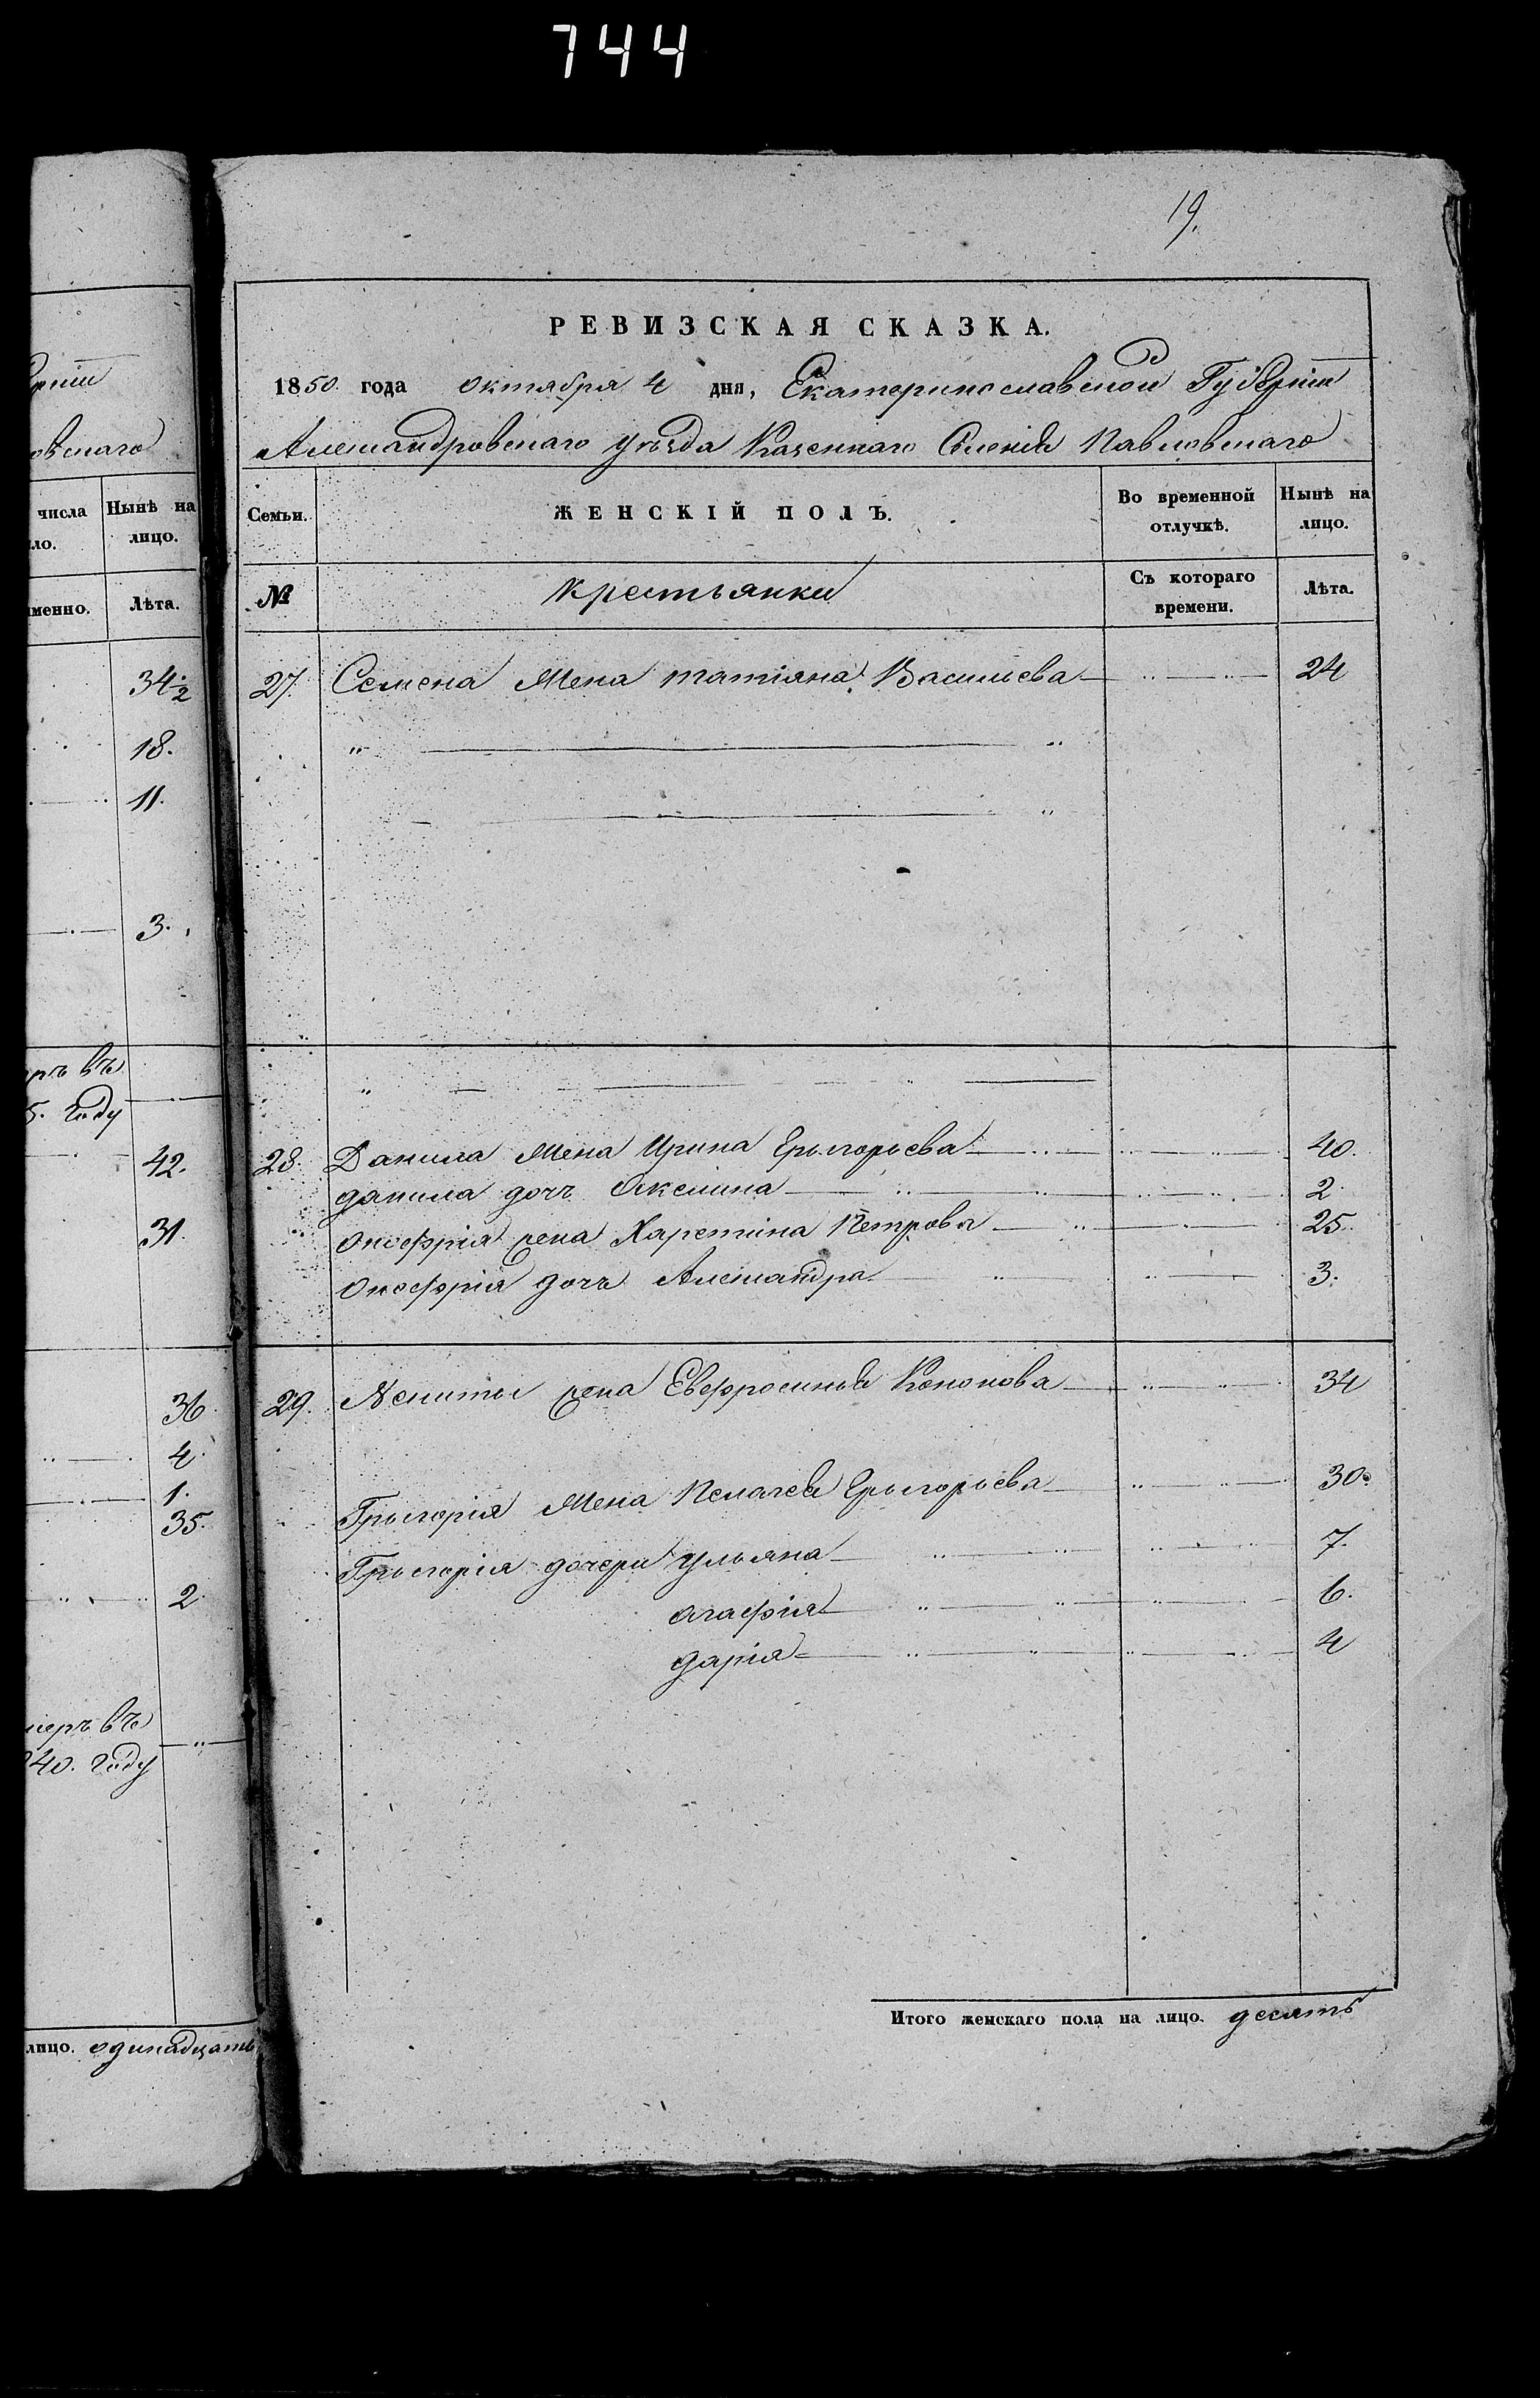 744
19.
РЕВИЗСКАЯ СКАЗКА.
1850. года октября 4 дня, Екатеринославской Губернiи
Александровскаго уѣзда Казеннаго Селенiя Павловскаго
Семьи.
ЖЕНСКIЙ ПОЛЪ.
Во временной отлучкѣ.
Нынѣ на лицо.
№
крестьянки
Съ котораго времени.
Лѣта.
27. Семена Жена татiяна Васильева 24
28. Данила Жена Ирина Григорьева 40.
данила дочь Акелина 2
онофрiя жена Харетина Петрова 25.
Онофрiя дочь Александра 3.
29. Никиты жена Евфросинiя Кононова 34
Григорiя Жена Пелагея Григорьева 30.
Григорiя дочери ульяна 7.
агафiя 6.
дарiя 4
Итого женскаго пола на лицо. десять
рнiи
овскаго
числа
ло.
Нынѣ на
лицо.
именно.
Лѣта.
34 1/2
18.
11.
3.
ръ въ
5. году
42.
31.
36
4.
1.
35.
2
меръ въ
40. году
лицо. одинадцать